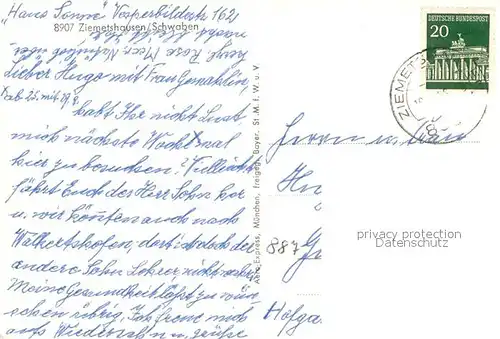 "Haus Sonne" Vesperbildstr. 162
8907 Ziemetshausen/Schwaben
Lieber Hugo mit Frau Gemahlin,
habt Ihr nicht Lust
mich nächste Woche mal
hier zu besuchen? Vielleicht
fährt Euch der Herr Sohn her
u. wir könnten auch nach
Walkertshofen, dort ist doch der
andere Sohn Lehrer, nicht wahr?
Meine Gesundheit läßt zu wün-
schen übrig. Ich freue mich
aufs Wiedersehn u. grüße
Aero-Express, München, Freigeg. Bayer. St. M. f. W. u. V.
DEUTSCHE BUNDESPOST
20
ZIEMETS
Herrn u. Frau
Hu
887
Gü
Holga
privacy protection
Datenschutz